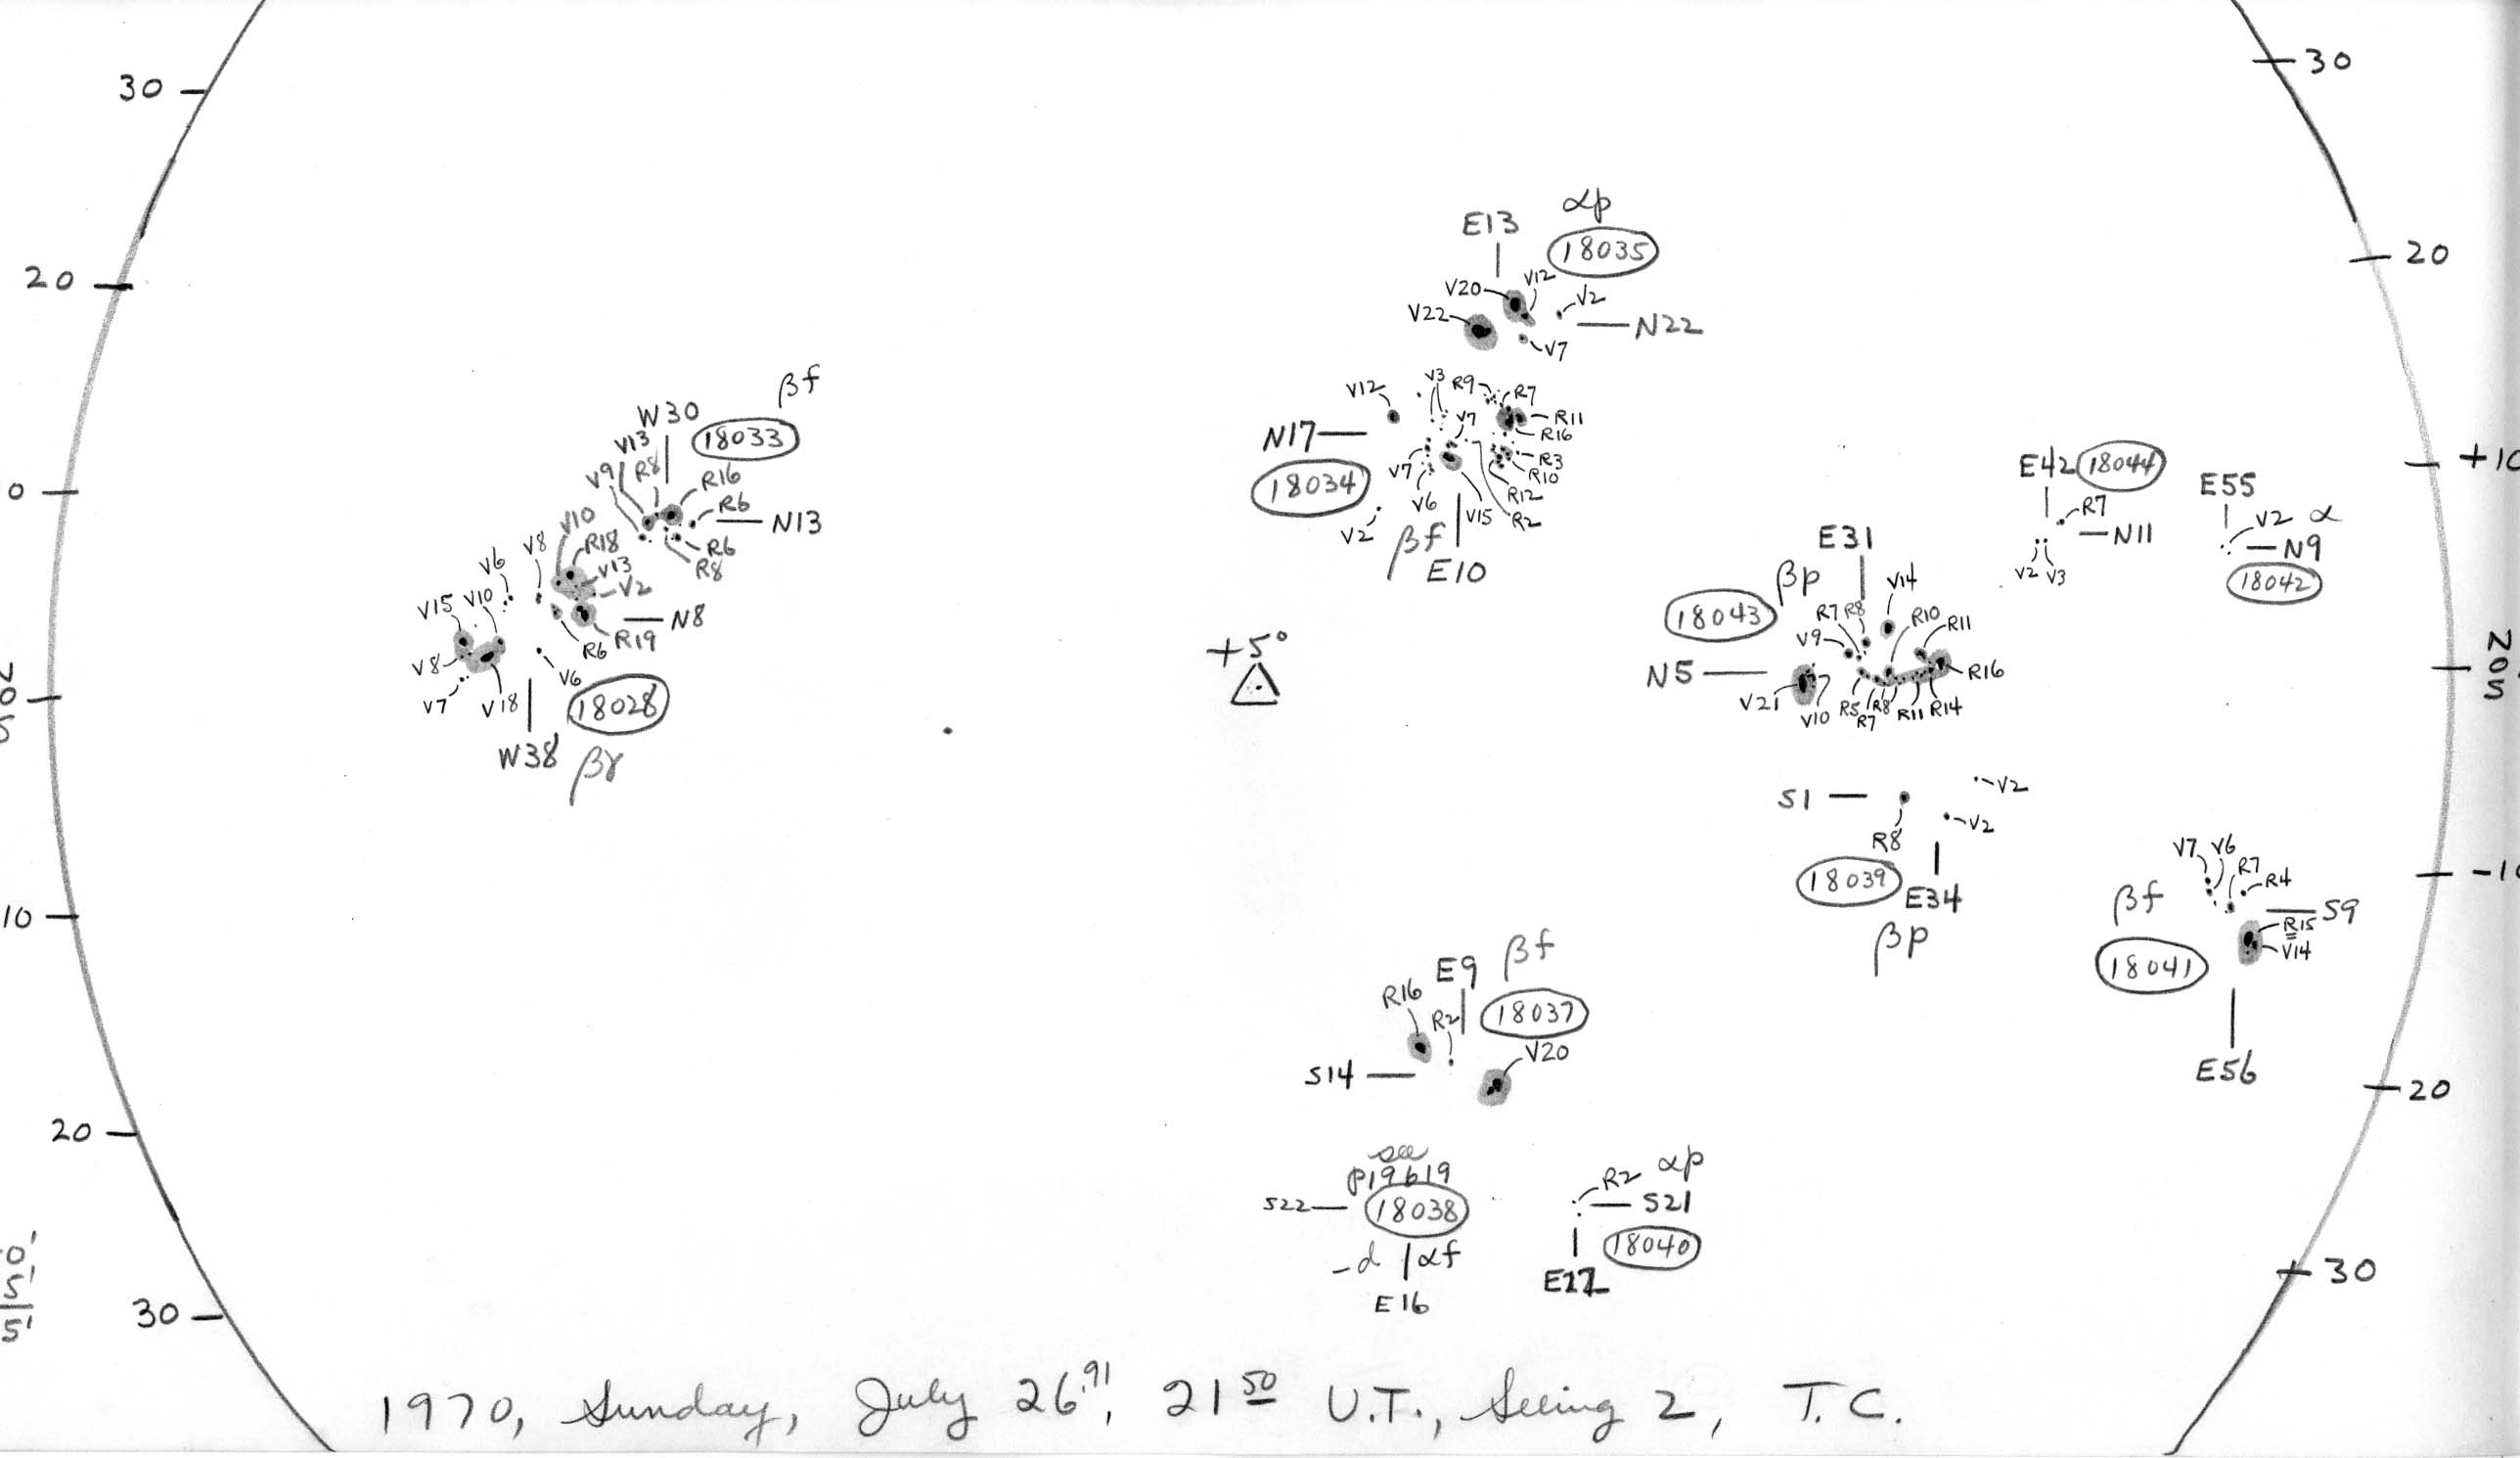 30
30
20
20
0
+10
N
0
S
N
0
S
10
-10
20
20
30
30
0'
5'
5'
βf
W30
18033
V13
V9
R8
R16
R6
N13
R6
R8
V10
R18
V8
V13
V6
V2
V15
V10
N8
R19
R6
V8
V6
V7
V18
18028
W38
βγ
αp
E13
18035
V12
V20
V2
V22
N22
V7
V3
R9
V12
R7
V7
R11
N17
R16
V7
R3
R10
18034
V6
R12
V15
R2
V2
βf
E10
+5°
E42
18044
R7
N11
V2
V3
E55
V2
α
N9
18042
E31
βp
V14
18043
R7
R8
R10
V9
R11
N5
R16
V21
V10
R5
R7
R8
R11
R14
V2
S1
V2
R8
18039
E34
βp
V7
V6
R7
R4
βf
S9
R15
V14
18041
E56
βf
E9
R16
18037
R2
V20
S14
see
P19619
S22
18038
-d
αf
E16
αp
R2
S21
18040
1970, Sunday, July 26.91, 21 50 U.T., Seeing 2, T.C.